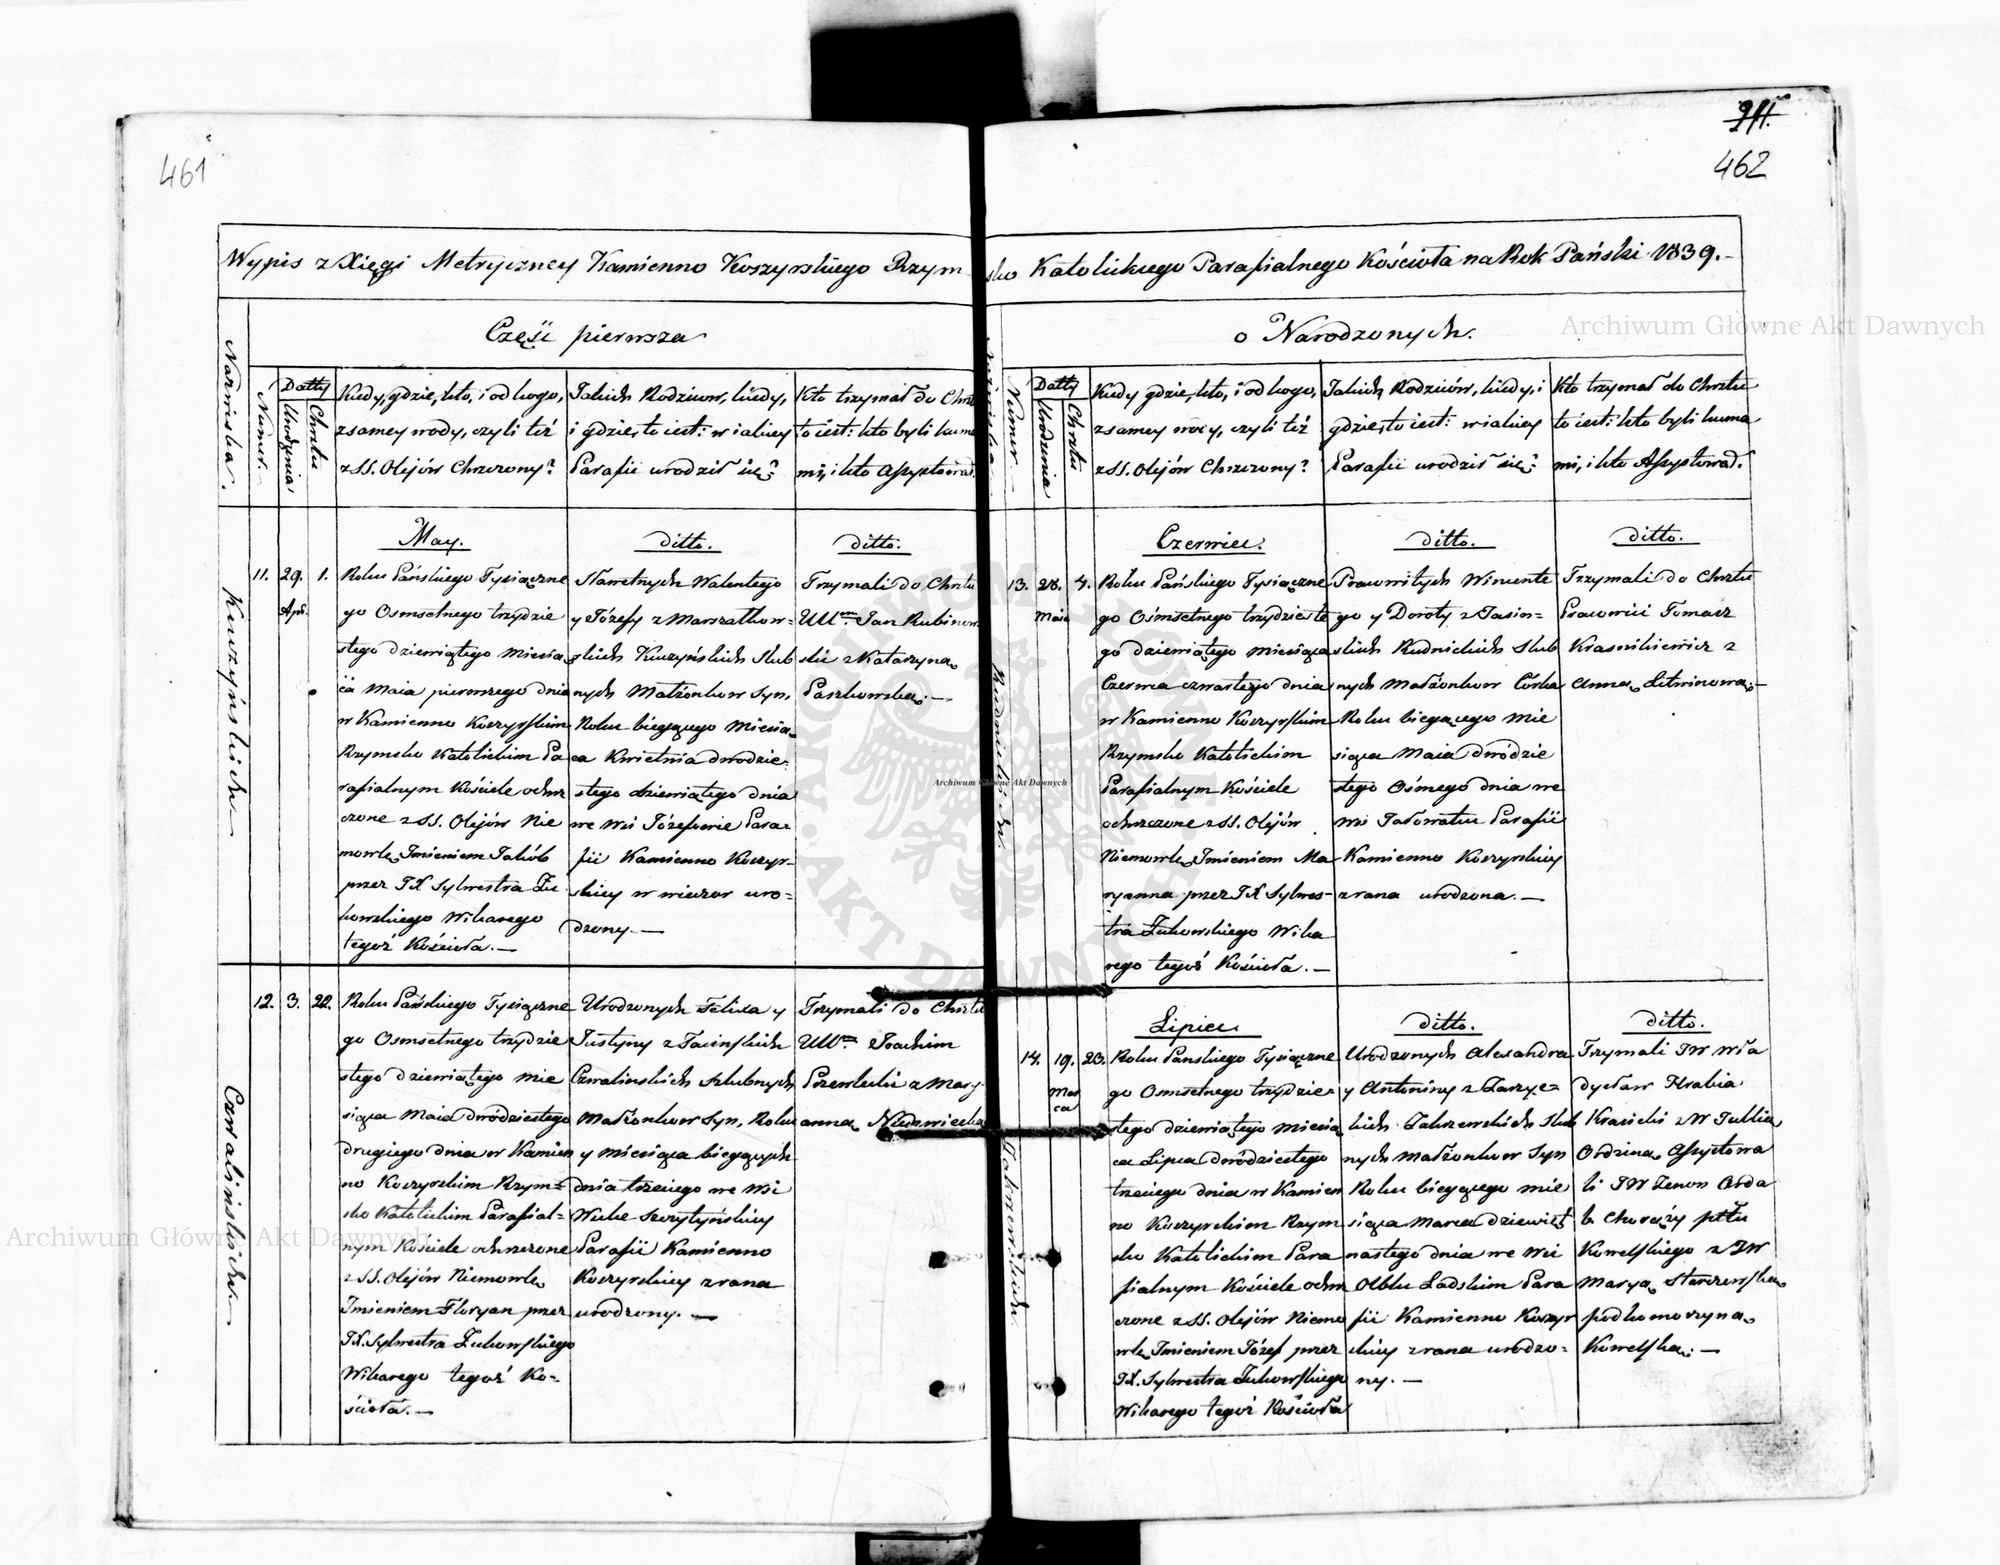 461
911.
462
Wypis z Xięgi Metryczney Kamienno Koszyrskiego Rzym-sko Katolickiego Parafialnego Kościoła na Rok Pański 1839.-
Część pierwsza
o Narodzonych.
Nazwiska.
Numer.
Datty
Urodzenia
Chrztu
Kiedy, gdzie, kto, i od kogo,
z samey wody, czyli też
z SS. Olejów Chrzczony?
Jakich Rodziców, kiedy,
i gdzie, to iest: w iakiey
Parafii urodził się?
Kto trzymał do Chrztu
to iest: kto byli kuma
mi, i kto Assystował.
May.
ditto.
ditto.
Kuczyńskich
11. 29. 1.
Apr.
Roku Pańskiego Tysiączne
go Osmsetnego trzydzie
stego dziewiątego Miesią
ca Maia pierwszego dnia
w Kamienno Koszyrskim
Rzymsko Katolickim Pa
rafialnym Kościele ochrz
czone z SS. Olejów Nie
mowle Imieniem Jakób
przez JX Sylwestra Żu
kowskiego Wikarego
tegoż Kościoła.—
Sławetnych Walentego
y Józefy z Marszałkow-
skich Kuczyńskich Slub
nych Małżonkow Syn,
Roku bieżącego Miesią-
ca Kwietnia dwodzie-
stego dziewiątego dnia
we Wsi Józefowie Para-
fii Kamienno Koszyr-
skiey w wieczor uro-
dzony.—
Trzymali do Chrztu
UUr. Jan Rubinow
ski z Katarzyną
Paszkowską.—
Czwalińskich
12. 3. 22.
Roku Pańskiego Tysiączne
go Osmsetnego trzydzie
stego dziewiątego Mie
siąca Maia dwódziestego
drugiego dnia w Kamien
no Koszyrskim Rzym-
sko Katolickim Parafial-
nym Kościele ochrzczone
z SS. Olejów Niemowle
Imieniem Floryan przez
JX. Sylwestra Żukowskiego
Wikarego tegoż Ko-
ścioła.—
Urodzonych Felixa y
Justyny z
Czwalinskich szlubnych
Małżonkow Syn, Roku
y miesiąca bieżących
dnia trzeciego we Wsi
Parafii Kamienno
Koszyrskiey z rana
urodzony.—
Trzymali do Chrztu
UUr. Joachim
Przewłocki z Mary-
anną
Nazwiska
Numer
Datty
Urodzenia
Chrztu
Kiedy gdzie, kto, i od kogo,
z samey wody, czyli też
z SS. Olejów Chrzczony?
Jakich Rodziców, kiedy, i
gdzie, to iest: w iakiey
Parafii urodził się?
Kto trzymał do Chrztu
to iest: kto byli kuma
mi, i kto Assystował.
Czerwiec.
ditto.
ditto.
Rudnickich
13. 28. 4.
Maia
Roku Pańskiego Tysiączne
go Ośmsetnego trzydzieste
go dziewiątego miesiąca
Czerwca czwartego dnia
w Kamienno Koszyrskim
Rzymsko Katolickim
Parafialnym Kościele
ochrzczone z SS. Olejów
Niemowle Imieniem Ma
ryanna przez JX Sylwes-
tra Żukowskiego Wika
rego tegoż Kościoła.—
Pracowitych Wincente
go y Doroty z Jasin-
skich Rudnickich Slub
nych Małżonkow Córka
Roku bieżącego Mie
siąca Maia dwódzie
stego Ośmego dnia we
Wsi Jałowatku Parafii
Kamienno Koszyrskiey
z rana urodzona.—
Trzymali do Chrztu
Pracowici Tomasz
Krasnikiewicz z
Anną Litwinową.—
Lipiec
ditto.
ditto.
Zakrzewskich
14. 19. 23.
Mar
ca
Roku Panskiego Tysiączne
go Osmsetnego trzydzie-
stego dziewiątego miesią
ca Lipca dwódziestego
trzeciego dnia w Kamien
no Koszyrskim Rzym
sko Katolickim Para
fialnym Kościele ochrz
czone z SS. Olejów Niemo
wle Imieniem Józef przez
JX. Sylwestra Żukowskiego
Wikarego tegoż Kościoła
Urodzonych Alexandra
y Antoniny z Zarzyc-
kich Zakrzewskich Slub
nych Małżonkow Syn
Roku bieżącego mie
siąca Marca dziewięt
nastego dnia we Wsi
Olblu Ladskim Para
fii Kamienno Koszyr
skiey z rana urodzo-
ny.—
Trzymali JW Wła
dysław Hrabia
Krasicki z W Julią
Ordziną Assystowa
li JW Zenon Orda
b. Chorąży pttu
Kowelskiego z JW
Maryą
podkomorzyną
Kowelską.—
Archiwum Główne Akt Dawnych
Archiwum Główne Akt Dawnych
Archiwum Główne Akt Dawnych